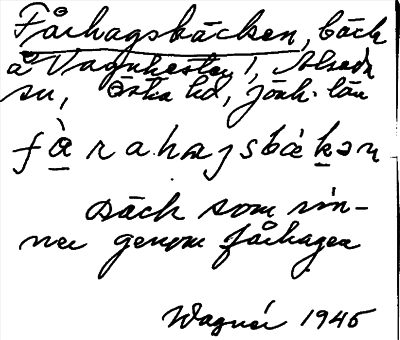 Fårhagsbäcken, bäck
å Vagnhester 1, Alseda
sn, Östra hd, Jönk. län
fårahagsbäkən
Bäck som rin-
ner genom fårhagen
Wagnér 1945